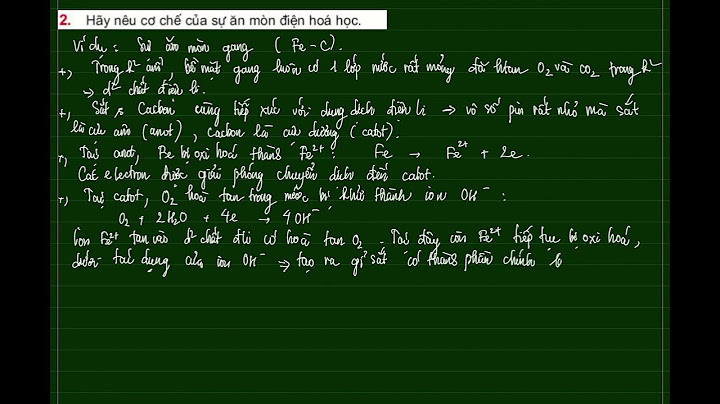 2. Hãy nêu cơ chế của sự ăn mòn điện hoá học.
Ví dụ: Sự ăn mòn gang (Fe-C).
+, Trong k² ẩm, bề mặt gang luôn có 1 lớp nước rất mỏng đã htan O₂ và CO₂ trong k²
→ d² chất điện li.
+, Sắt & Cacbon cùng tiếp xúc với dung dịch điện li → vô số pin rất nhỏ mà sắt
là cực âm (anot), cacbon là cực dương (catot).
+, Tại anot, Fe bị oxi hoá thành Fe²⁺: Fe → Fe²⁺ + 2e.
Các electron được giải phóng chuyển dịch đến catot.
+, Tại catot, O₂ hoà tan trong nước bị khử thành ion OH⁻:
O₂ + 2H₂O + 4e → 4OH⁻
Ion Fe²⁺ tan vào d² chất đli có hoà tan O₂. Tại đây ion Fe²⁺ tiếp tục bị oxi hoá,
dưới tác dụng của ion OH⁻ → tạo ra gỉ sắt có thành phần chính